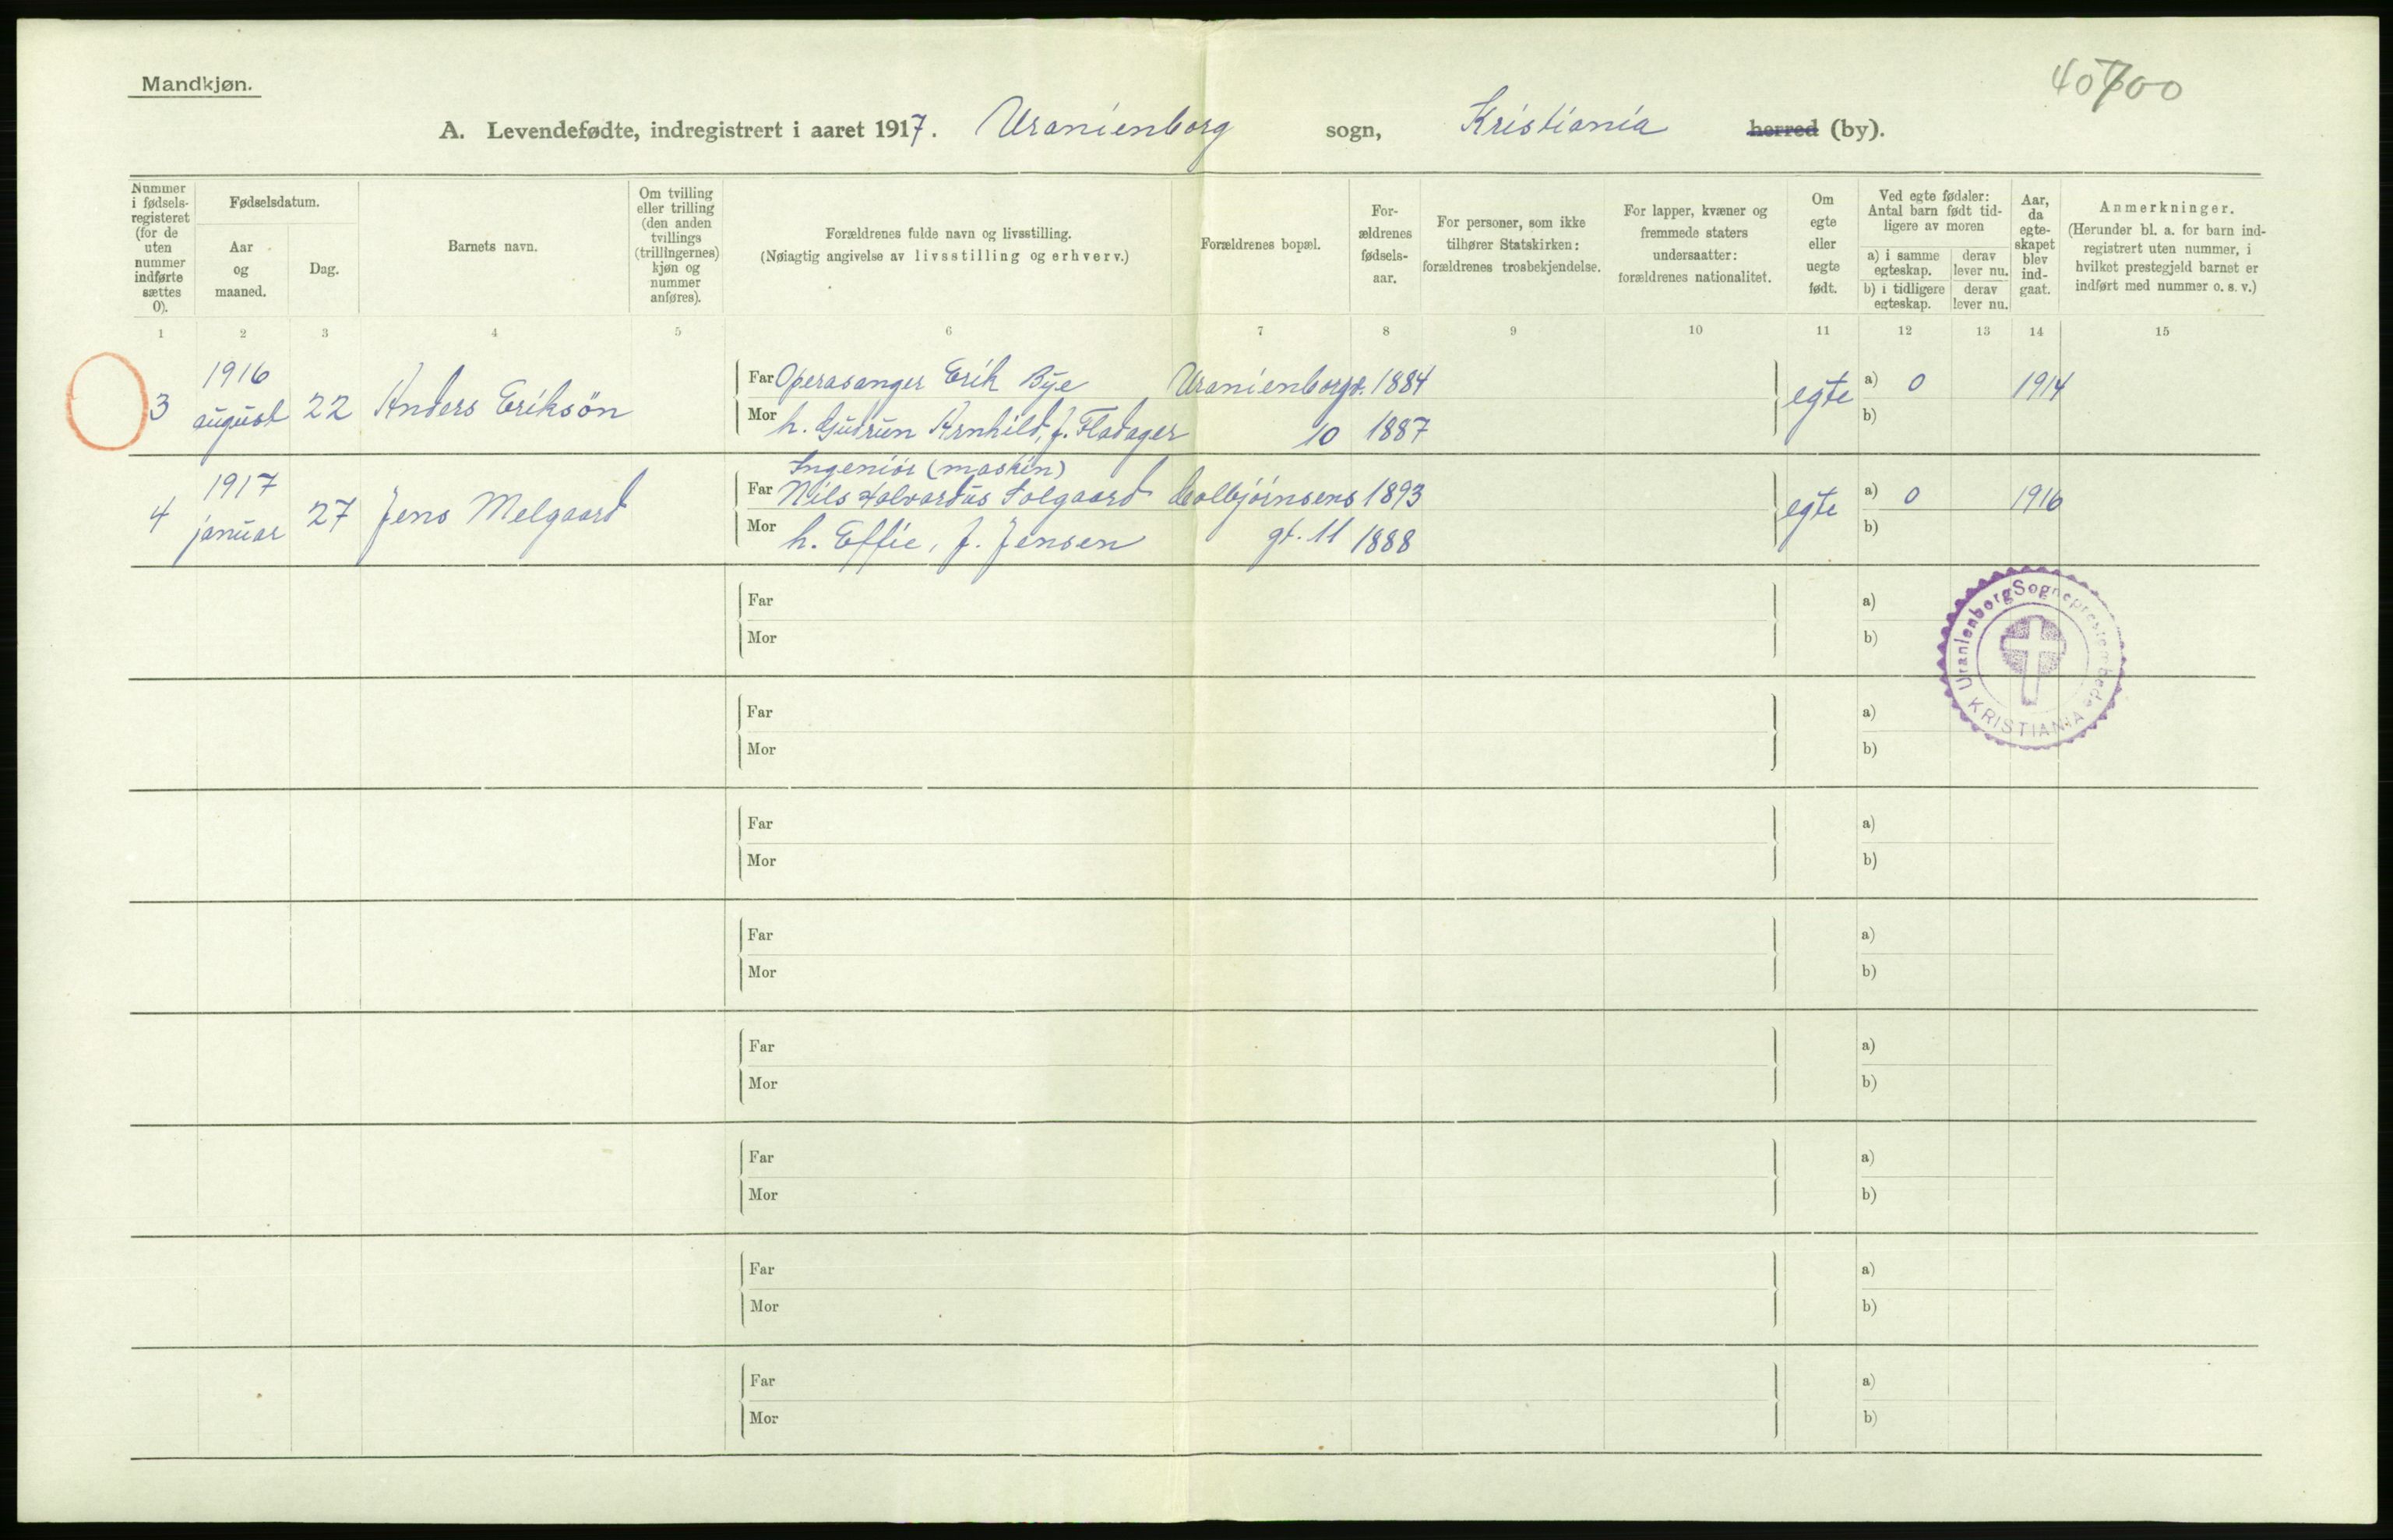 Mandkjøn.
A. Levendefødte, indregistrert i aaret 1917. Uranienborg sogn, Kristiania herred (by).
Nummer i fødsels-registeret (for de uten nummer indførte sættes 0).
Fødselsdatum.
Aar og maaned.
Dag.
Barnets navn.
Om tvilling eller trilling (den anden tvillings (trillingernes) kjøn og nummer anføres).
Forældrenes fulde navn og livsstilling.
(Nøiagtig angivelse av livsstilling og erhverv.)
Forældrenes bopæl.
For-ældrenes fødsels-aar.
For personer, som ikke tilhører Statskirken: forældrenes trosbekjendelse.
For lapper, kvæner og fremmede staters undersaatter: forældrenes nationalitet.
Om egte eller uegte født.
Ved egte fødsler: Antal barn født tid-ligere av moren
a) i samme egteskap.
derav lever nu.
b) i tidligere egteskap.
derav lever nu.
Aar, da egte-skapet blev ind-gaat.
Anmerkninger.
(Herunder bl. a. for barn ind-registrert uten nummer, i hvilket prestegjeld barnet er indført med nummer o. s. v.)
1 2 3 4 5 6 7 8 9 10 11 12 13 14 15
3 1916 august 22 Anders Eriksøn
Far Operasanger Erik Bye Uranienborgv. 1884 egte a) 0 1914
Mor h. Gudrun Arnhild, f. Fladager 10 1887 b)
4 1917 januar 27 Jens Melgaard
Ingeniør (maskin)
Far Nils Halvardus Solgaard Colbjørnsens 1893 egte a) 0 1916
Mor h. Effie, f. Jensen gt. 11 1888 b)
Far a)
Mor b)
Uranienborg Sogneprestembede
KRISTIANIA
Far a)
Mor b)
Far a)
Mor b)
Far a)
Mor b)
Far a)
Mor b)
Far a)
Mor b)
Far a)
Mor b)
Far a)
Mor b)